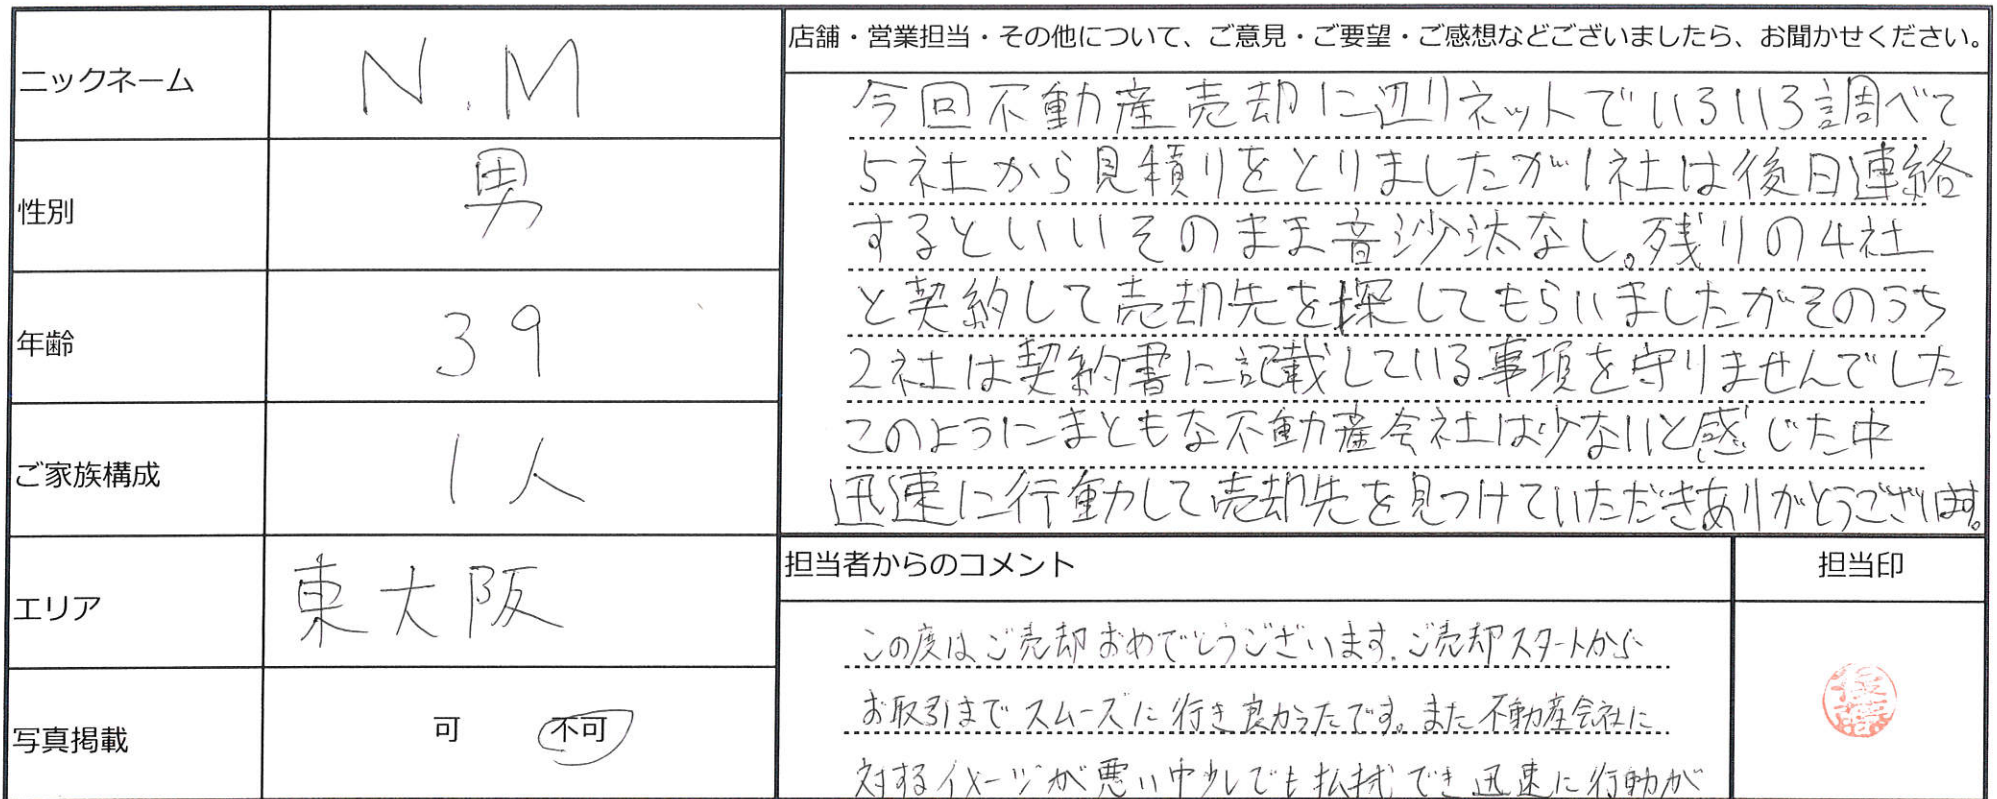 ニックネーム
N.M
性別
男
年齢
39
ご家族構成
1人
エリア
東大阪
写真掲載
可 不可
店舗・営業担当・その他について、ご意見・ご要望・ご感想などございましたら、お聞かせください。
今回不動産売却に辺りネットでいろいろ調べて
5社から見積りをとりましたが1社は後日連絡
するといいそのまま音沙汰なし。残りの4社
と契約して売却先を探してもらいましたがそのうち
2社は契約書に記載している事項を守りませんでした
このようにまともな不動産会社は少ないと感じた中
迅速に行動して売却先を見つけていただきありがとうございます。
担当者からのコメント
担当印
この度はご売却おめでとうございます。ご売却スタートから
お取引までスムーズに行き良かったです。また不動産会社に
対するイメージが悪い中少しでも払拭でき迅速に行動が